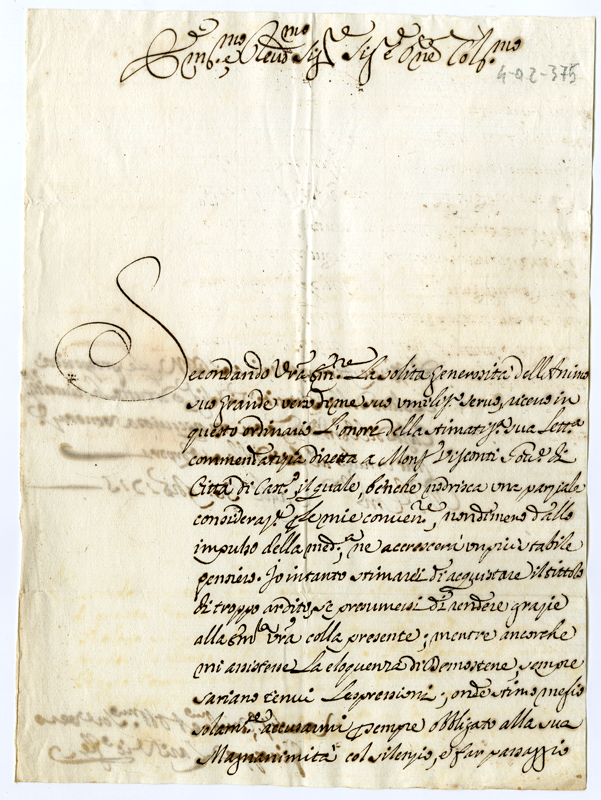 Em.mo e Reud.mo Sig.r Sig.r e Pne Col.mo
4-02-375
Secondando Vra Em.ne La solita generosità dell'Animo
suo grande verso di me suo umiliss.o seruo, riceuo in
questo ordinario L'onore della stimatiss.a sua Lettera
commendatizia diretta a Mons.r Visconti Gou.re di
Città di Cast.o, il quale, benche nodrisca una parziale
consideraz.e p le mie conuen.ze, nondimeno dallo
impulso della med.a, ne accrescerà un più stabile
pensiero. Io intanto stimarei di acquistare il titolo
di troppo ardito, se presumessi di rendere grazie
alla Em.za Vra colla presente; mentre ancorche
mi assistesse La eloquenza di Demostene, sempre
sariano tenui Le espressioni; onde stimo meglio
solam.te accusarmi p sempre obbligato alla sua
Magnanimità col silenzio, e far passaggio